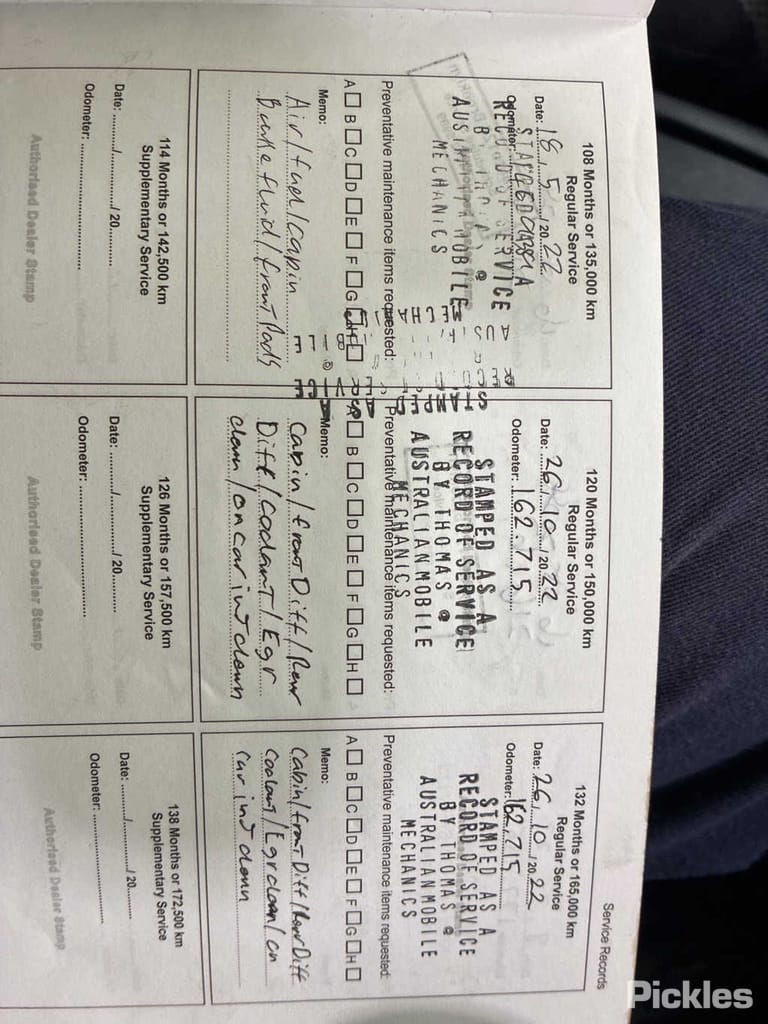 Service Records
108 Months or 135,000 km
Regular Service
Date: 18 / 5 / 20 22
Odometer:
STAMPED AS A
RECORD OF SERVICE
BY
AUSTRALIAN MOBILE
MECHANICS
Preventative maintenance items requested:
A B C D E F G H
Memo:
Air/fuel/cabin
Brake fluid/front Pads
120 Months or 150,000 km
Regular Service
Date: 26 / 10 / 20 22
Odometer: 162.715
STAMPED AS A
RECORD OF SERVICE
BY THOMAS @
AUSTRALIAN MOBILE
MECHANICS
Preventative maintenance items requested:
A B C D E F G H
Memo:
Cabin/front Diff/Rear
Diff/coolant/Egr
clean/on car int clean
132 Months or 165,000 km
Regular Service
Date: 26 / 10 / 20 22
Odometer: 162,715
STAMPED AS A
RECORD OF SERVICE
BY THOMAS @
AUSTRALIAN MOBILE
MECHANICS
Preventative maintenance items requested:
A B C D E F G H
Memo:
Cabin/front Diff/Rear Diff
coolant/Egr clean/on
car int clean
114 Months or 142,500 km
Supplementary Service
Date: ........../........../ 20..........
Odometer: ..............................
Authorised Dealer Stamp
126 Months or 157,500 km
Supplementary Service
Date: ........../........../ 20..........
Odometer: ..............................
Authorised Dealer Stamp
138 Months or 172,500 km
Supplementary Service
Date: ........../........../ 20..........
Odometer: ..............................
Authorised Dealer Stamp
Pickles